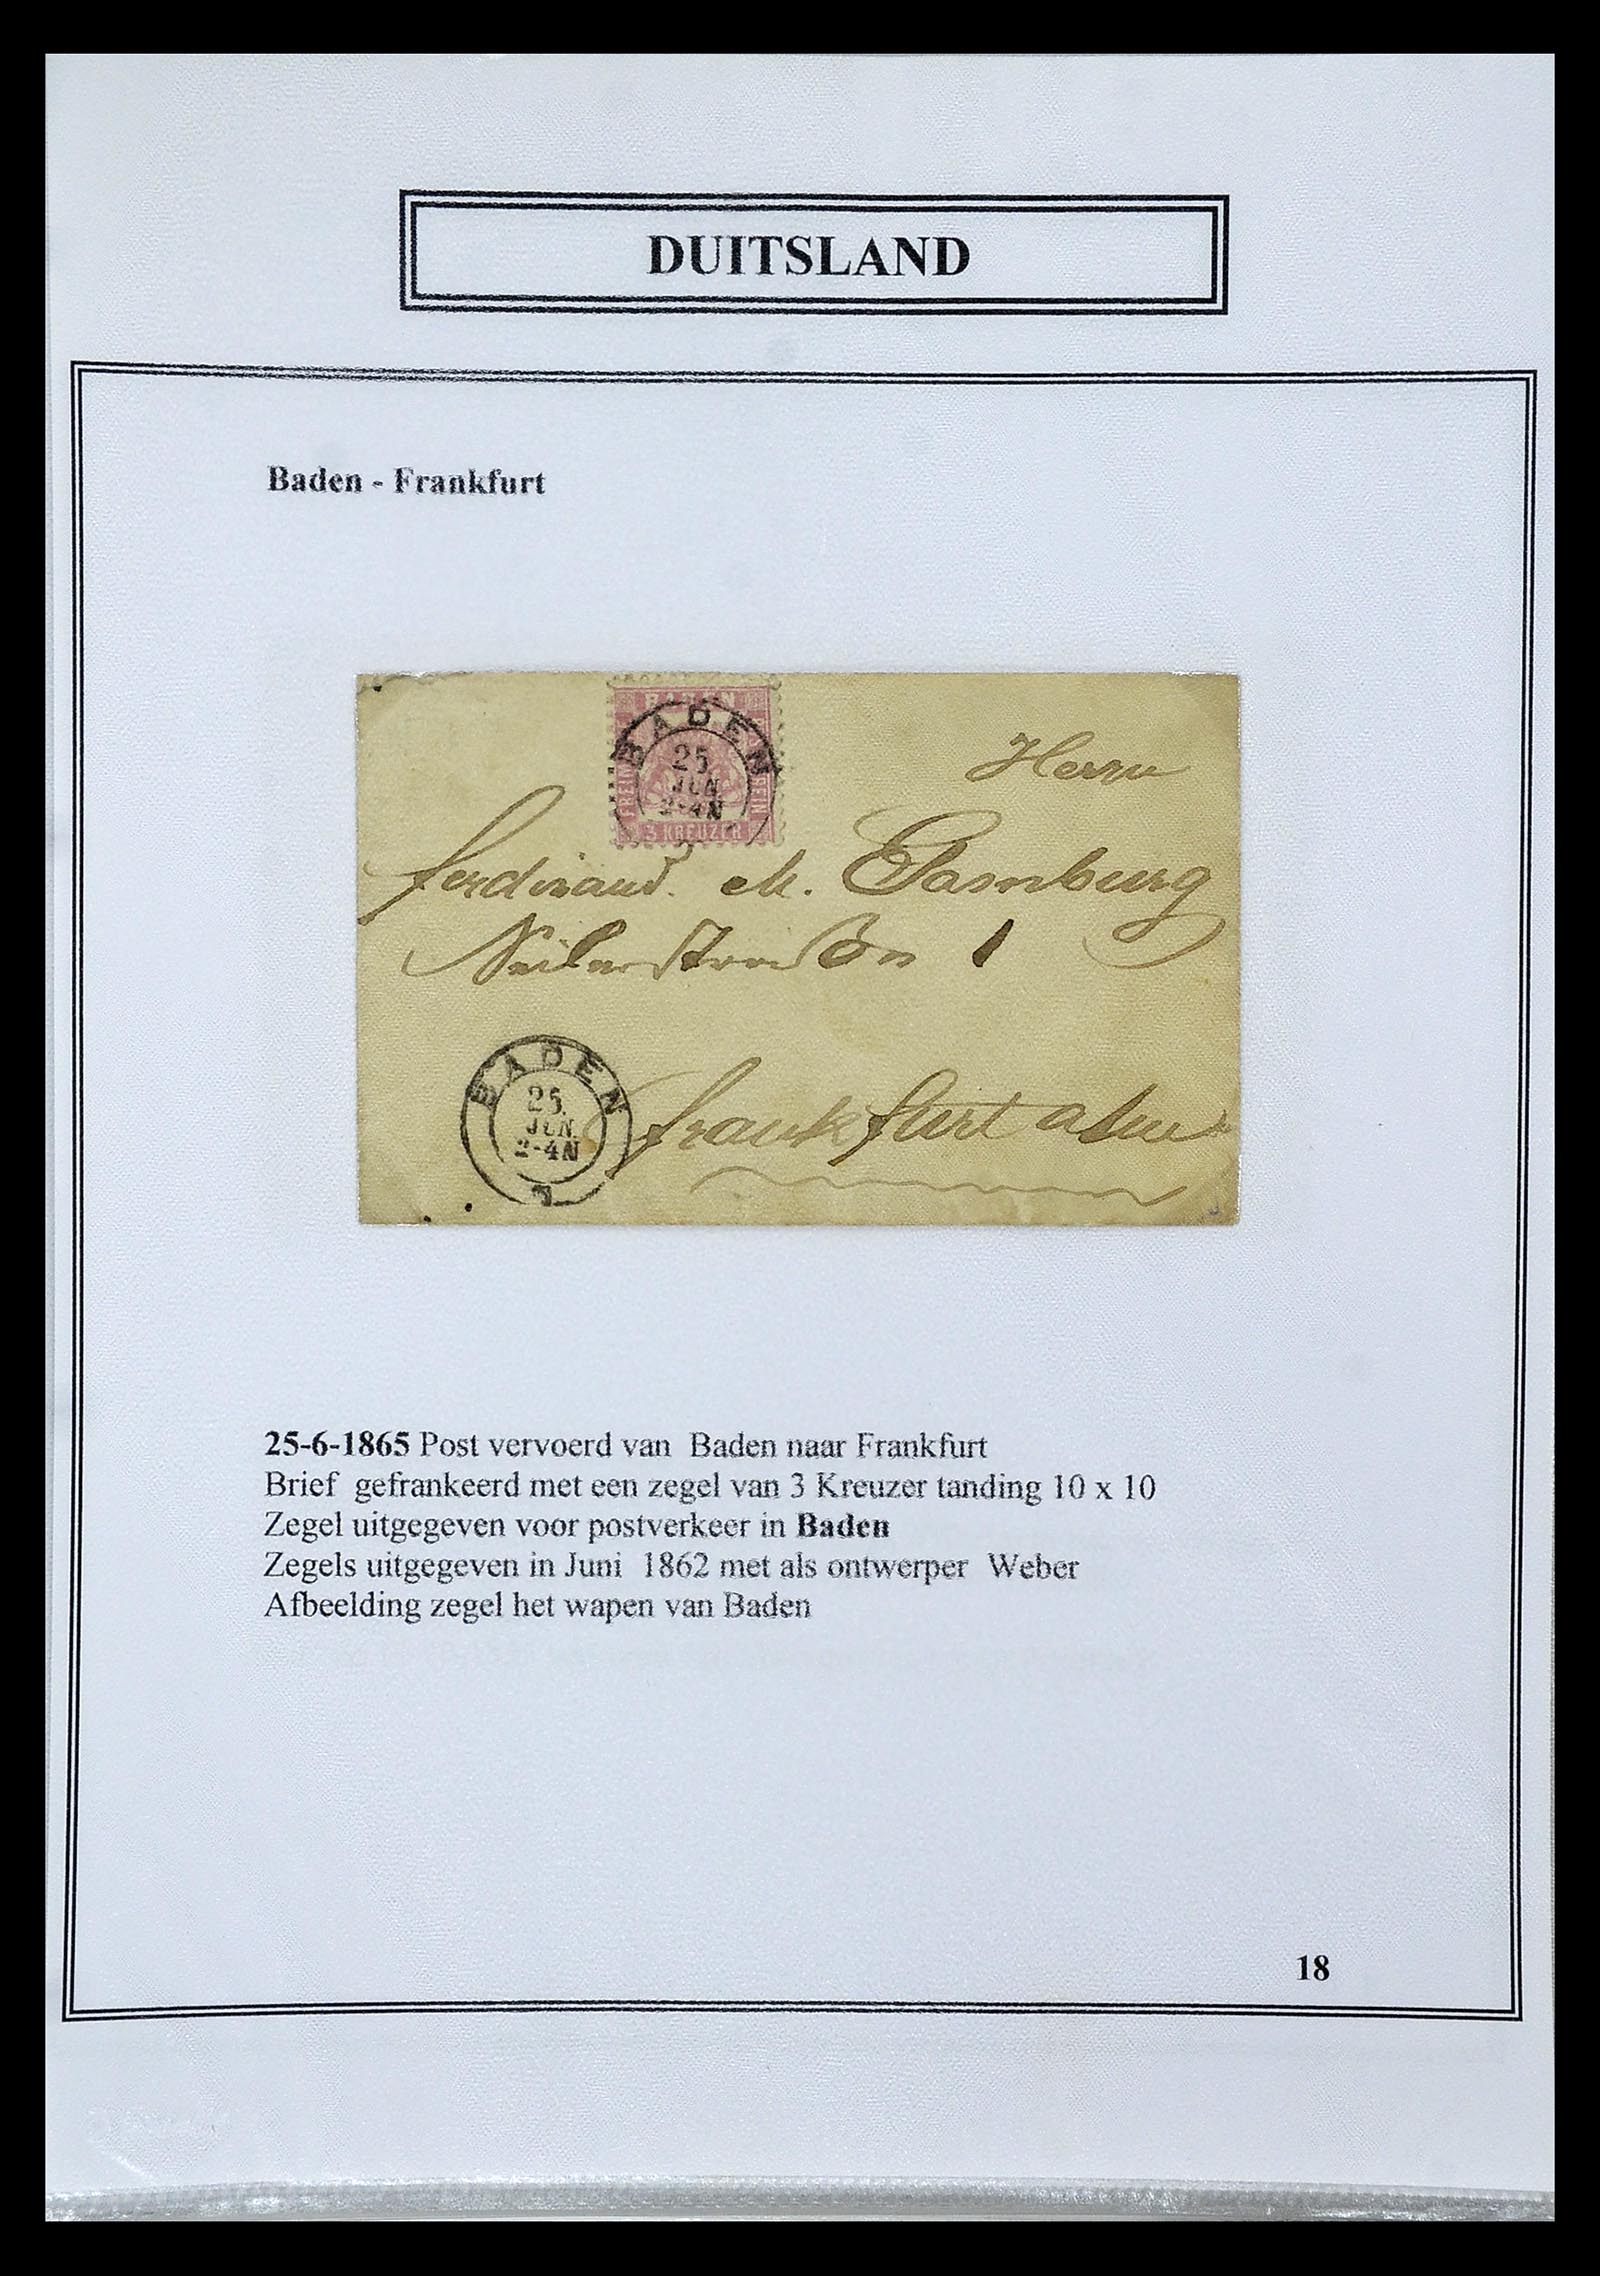 DUITSLAND
Baden - Frankfurt
BADEN
3 KREUZER
BADEN
25
JUN
2-4N
Herrn
Ferdinand. M.
1
BADEN
25.
JUN.
2-4N
Frankfurt
25-6-1865 Post vervoerd van Baden naar Frankfurt
Brief gefrankeerd met een zegel van 3 Kreuzer tanding 10 x 10
Zegel uitgegeven voor postverkeer in Baden
Zegels uitgegeven in Juni 1862 met als ontwerper Weber
Afbeelding zegel het wapen van Baden
18